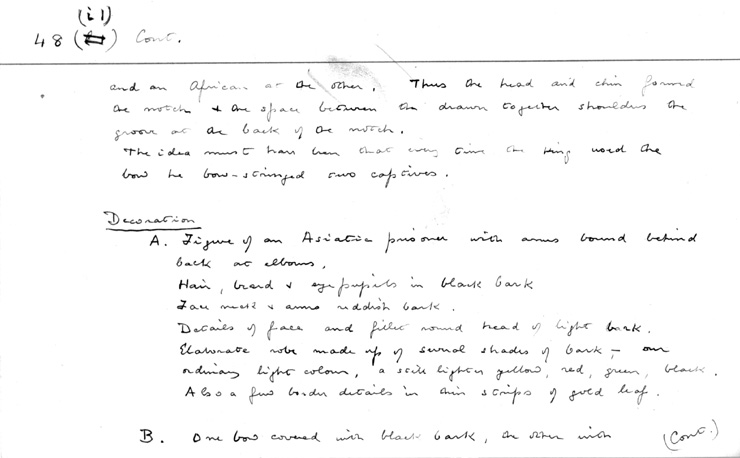 (i 1)
48 Cont.
and an African at the other. Thus the head and chin formed
the notch & the space between the drawn together shoulders the
groove at the back of the notch.
The idea must have been that every time the King used the
bow he bow-stringed two captives.
Decoration
A. Figure of an Asiatic prisoner with arms bound behind
back at elbows.
Hair, beard & eyepupils in black bark
Face neck & arms reddish bark.
Details of face and fillet round head of light bark.
Elaborate robe made up of several shades of bark – our
ordinary light colour, a still lighter yellow, red, green, black.
Also a few border details in thin strips of gold leaf.
B. One bow covered with black bark, the other with
(Cont.)